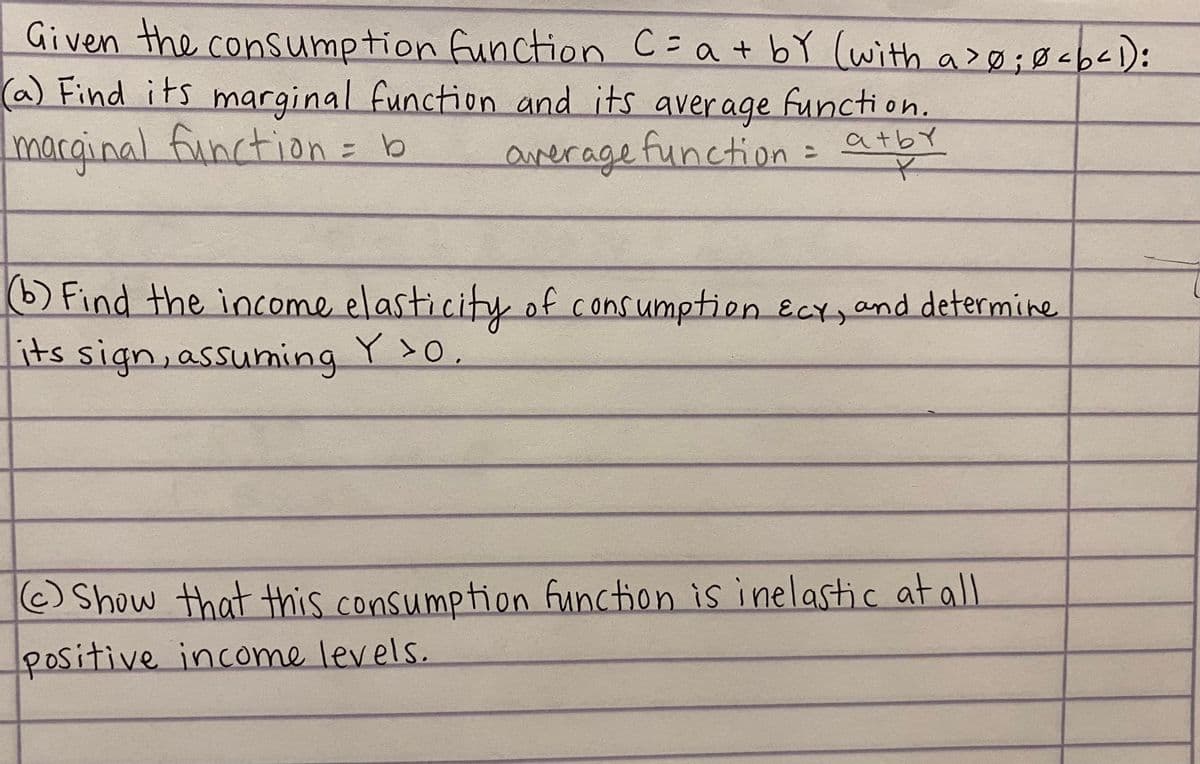 Given the consumption function C = a + bY (with a > ø ; ø < b < 1):
(a) Find its marginal function and its average function.
marginal function = b average function = a+bY / Y
(b) Find the income elasticity of consumption εcy, and determine
its sign, assuming Y > 0.
(c) Show that this consumption function is inelastic at all
positive income levels.